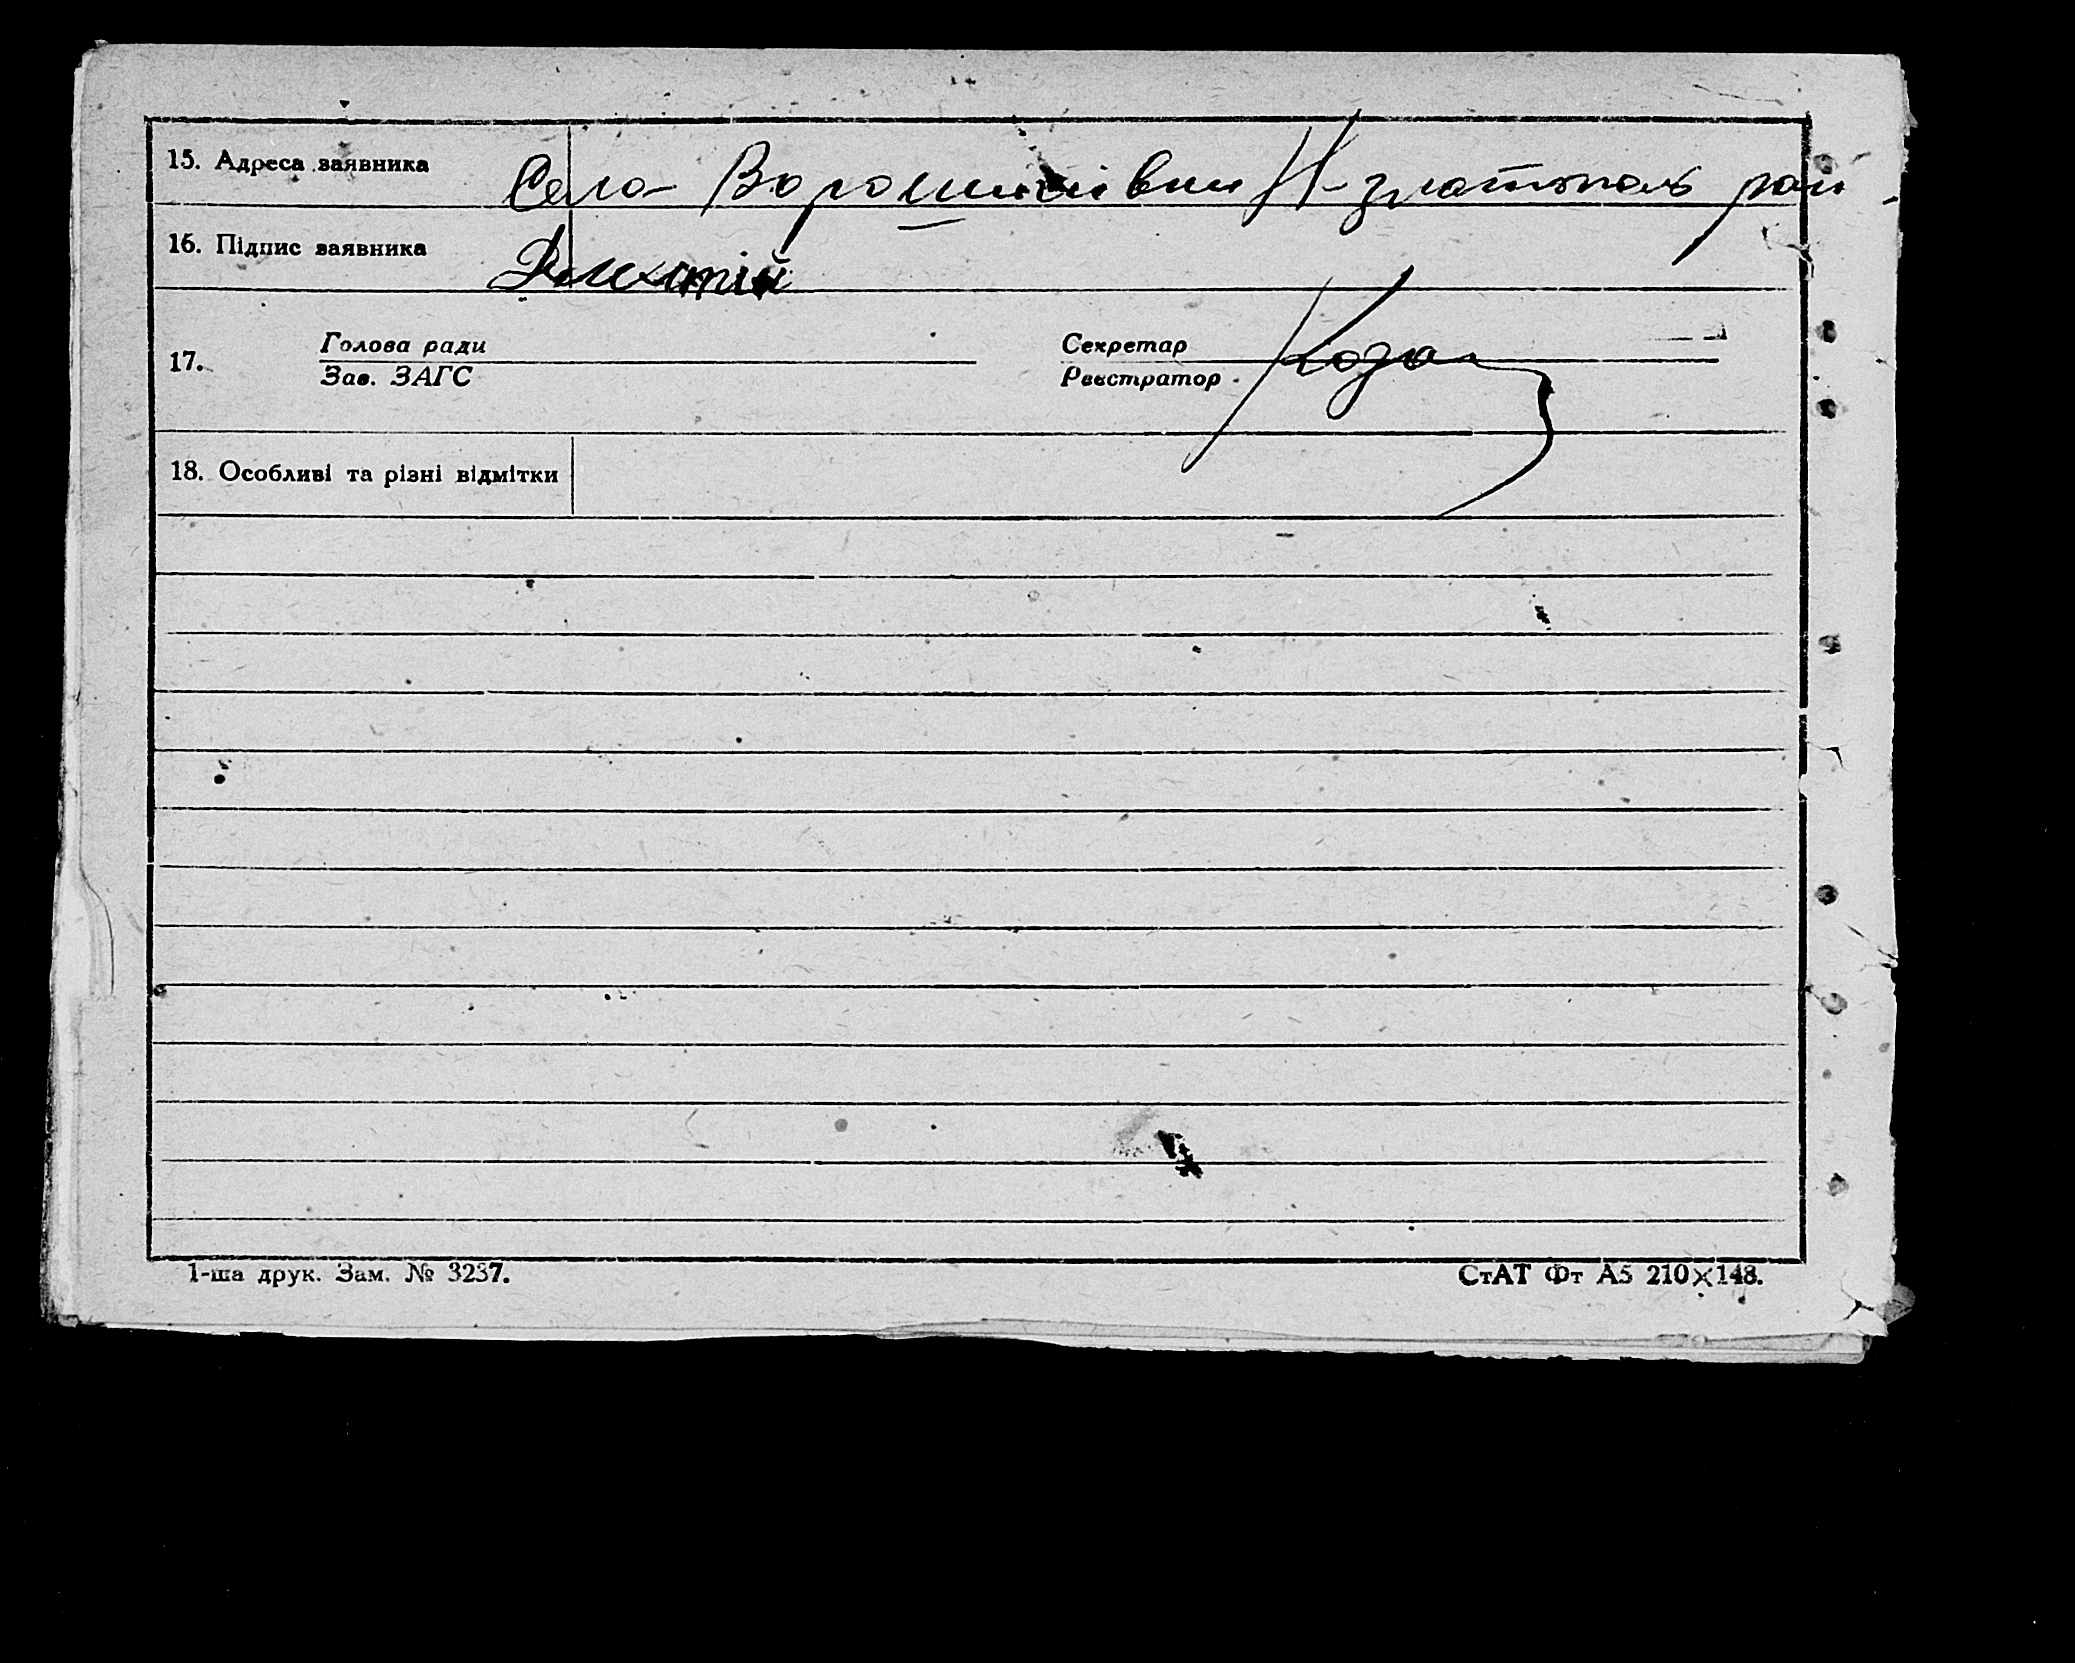 15. Адреса заявника Село Ворошилівки Н-златополь рай
16. Підпис заявника
17. Голова ради Секретар
Зав. ЗАГС Реєстратор
18. Особливі та різні відмітки
1-ша друк. Зам. № 3237. СтАТ Фт А5 210×148.